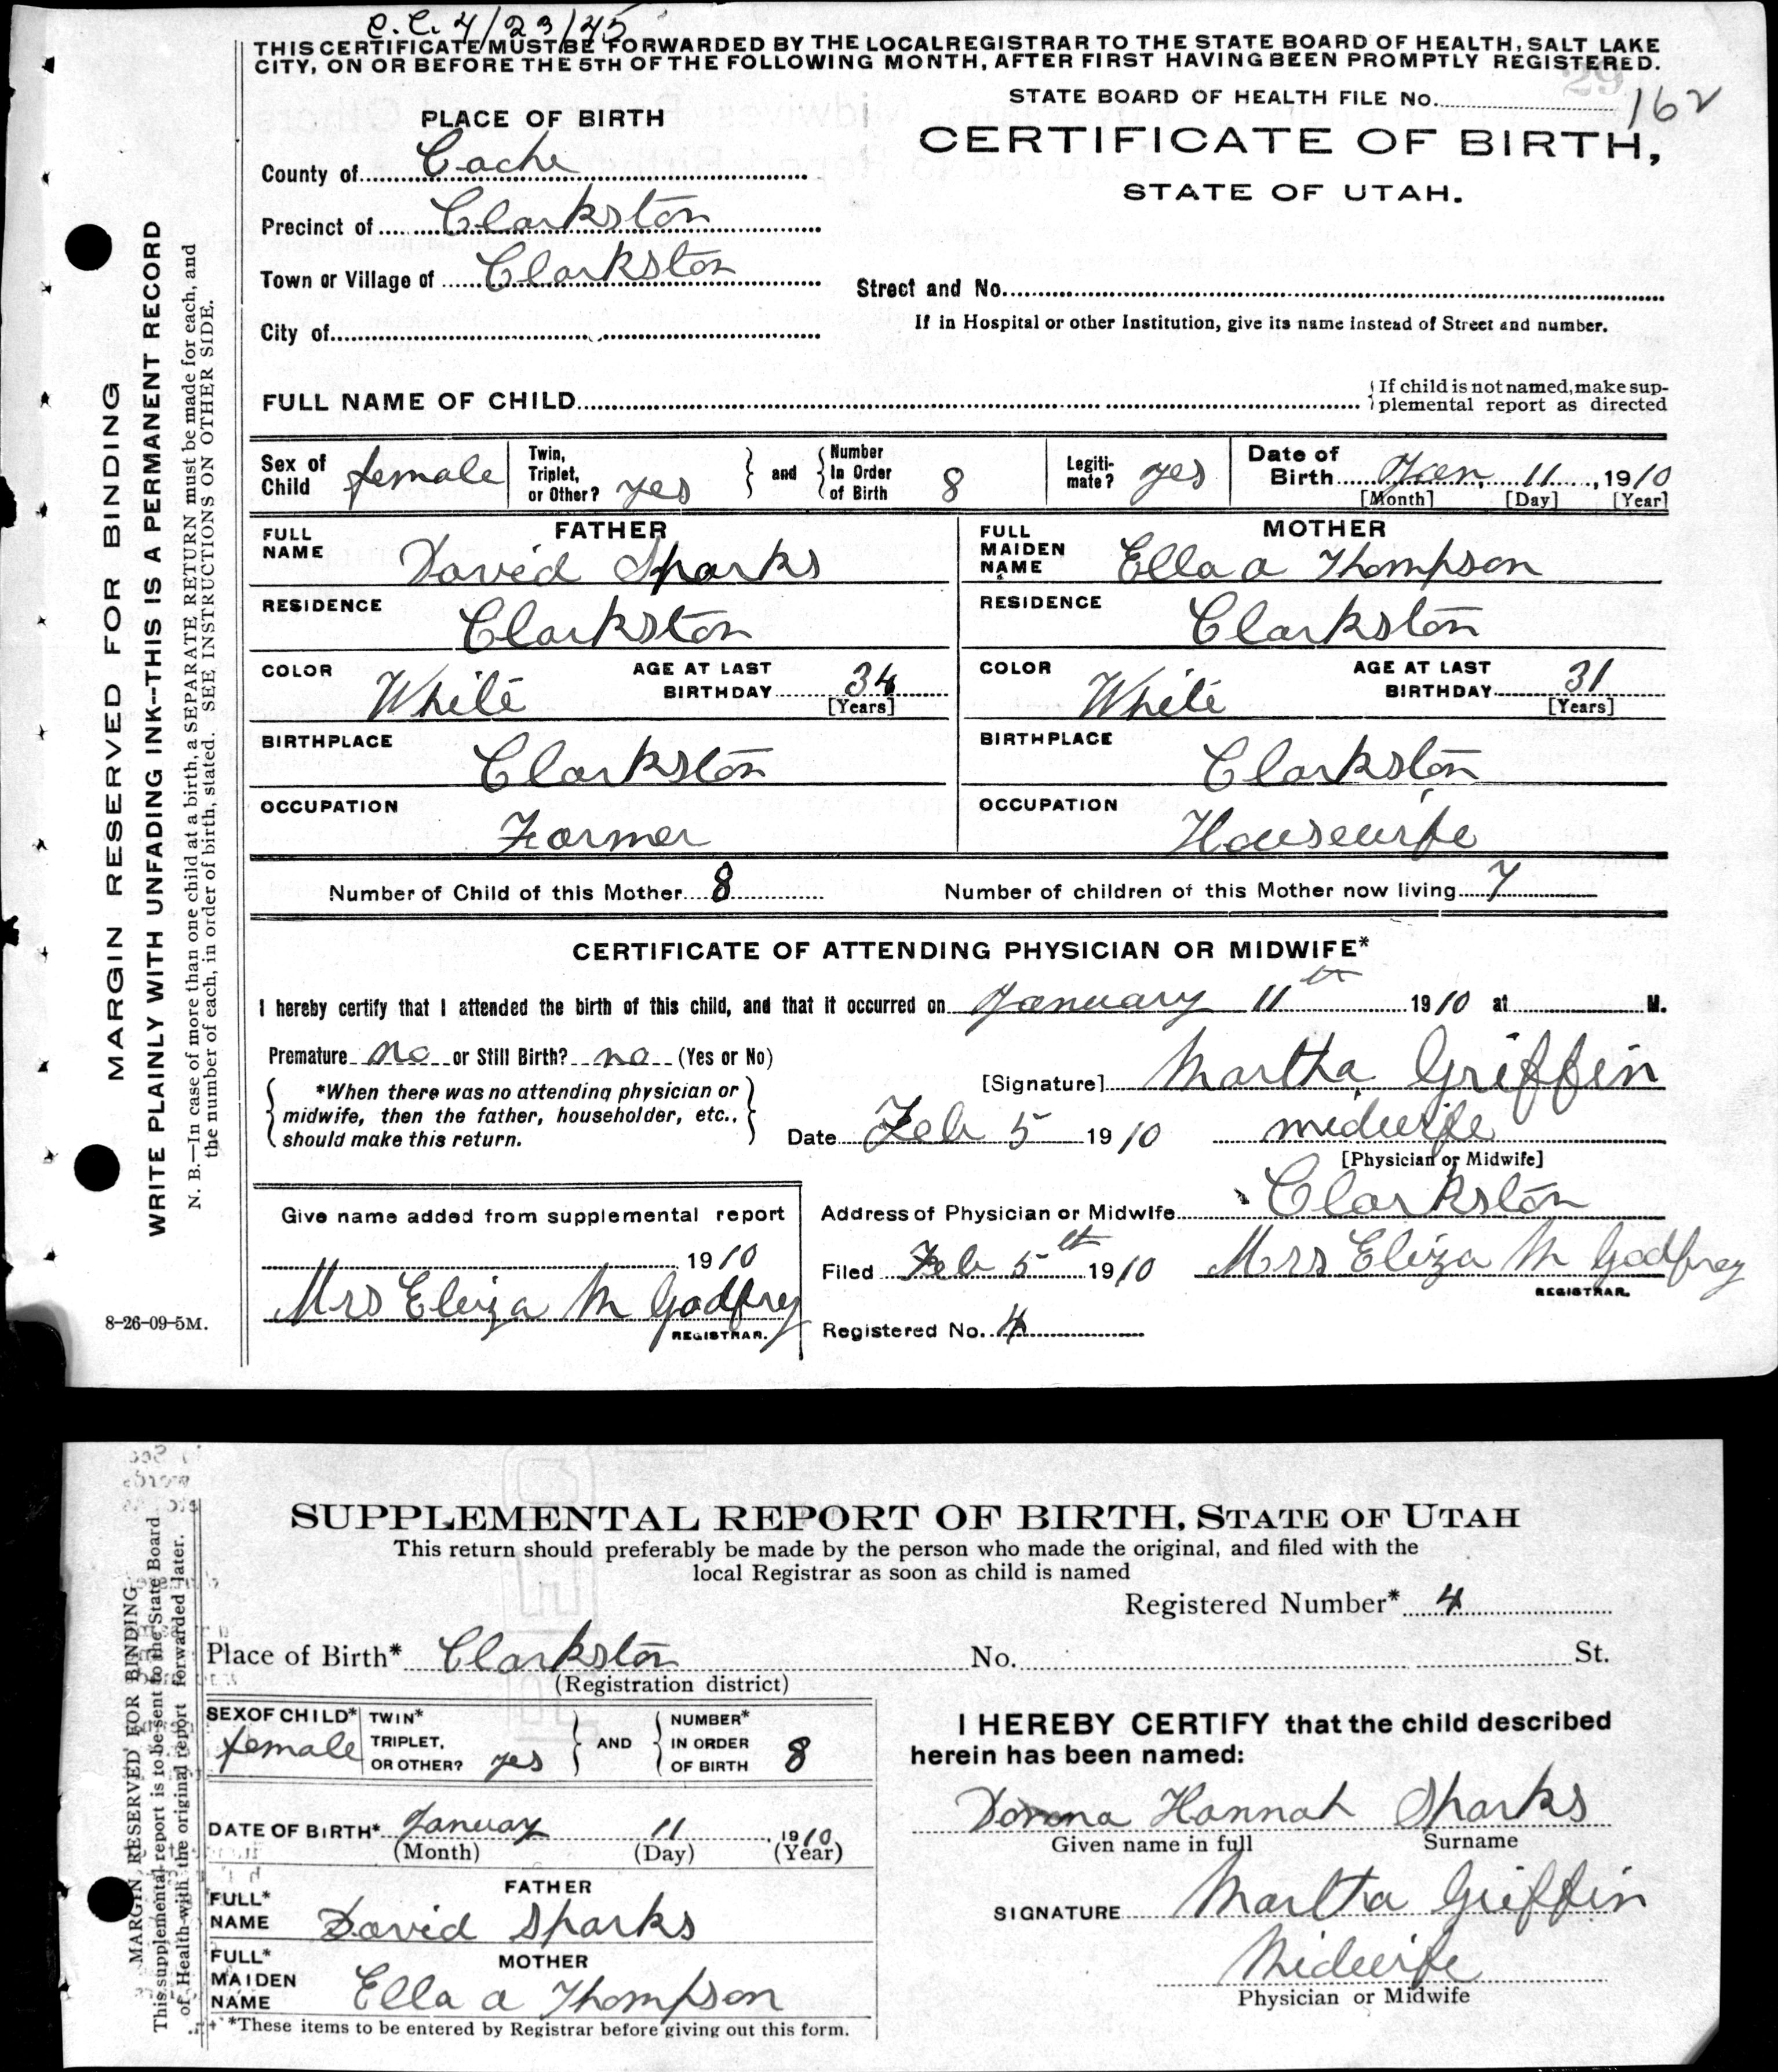 C.C. 4/23/45
THIS CERTIFICATE MUST BE FORWARDED BY THE LOCAL REGISTRAR TO THE STATE BOARD OF HEALTH, SALT LAKE
CITY, ON OR BEFORE THE 5TH OF THE FOLLOWING MONTH, AFTER FIRST HAVING BEEN PROMPTLY REGISTERED.
29
STATE BOARD OF HEALTH FILE No. 162
PLACE OF BIRTH
CERTIFICATE OF BIRTH,
STATE OF UTAH.
County of Cache
Precinct of Clarkston
Town or Village of Clarkston
Street and No.
City of
If in Hospital or other Institution, give its name instead of Street and number.
FULL NAME OF CHILD
If child is not named, make sup-
plemental report as directed
Sex of Child female
Twin, Triplet, or Other? yes
and Number In Order of Birth 8
Legiti-mate? yes
Date of Birth Jan, 11, 1910
[Month] [Day] [Year]
FATHER
FULL NAME David Sparks
RESIDENCE Clarkston
COLOR White AGE AT LAST BIRTHDAY 34 [Years]
BIRTHPLACE Clarkston
OCCUPATION Farmer
MOTHER
FULL MAIDEN NAME Ella a Thompson
RESIDENCE Clarkston
COLOR White AGE AT LAST BIRTHDAY 31 [Years]
BIRTHPLACE Clarkston
OCCUPATION Housewife
Number of Child of this Mother 8 Number of children of this Mother now living 7
CERTIFICATE OF ATTENDING PHYSICIAN OR MIDWIFE*
I hereby certify that I attended the birth of this child, and that it occurred on January 11th 1910 at M.
Premature no or Still Birth? no (Yes or No)
*When there was no attending physician or
midwife, then the father, householder, etc.,
should make this return.
[Signature] Martha Griffin
Date Feb 5 1910 midwife
[Physician or Midwife]
Address of Physician or Midwife Clarkston
Give name added from supplemental report
1910
Mrs Eliza M Godfrey
REGISTRAR.
Filed Feb 5th 1910 Mrs Eliza M Godfrey
REGISTRAR.
Registered No. 4
MARGIN RESERVED FOR BINDING
WRITE PLAINLY WITH UNFADING INK--THIS IS A PERMANENT RECORD
N. B.—In case of more than one child at a birth, a SEPARATE RETURN must be made for each, and
the number of each, in order of birth, stated. SEE INSTRUCTIONS ON OTHER SIDE.
8-26-09-5M.
SUPPLEMENTAL REPORT OF BIRTH, STATE OF UTAH
This return should preferably be made by the person who made the original, and filed with the
local Registrar as soon as child is named
Registered Number* 4
Place of Birth* Clarkston No. St.
(Registration district)
SEX OF CHILD* female
TWIN* TRIPLET, OR OTHER? yes
AND NUMBER* IN ORDER OF BIRTH 8
DATE OF BIRTH* January 11, 1910
(Month) (Day) (Year)
FATHER
FULL* NAME David Sparks
MOTHER
FULL* MAIDEN NAME Ella a Thompson
*These items to be entered by Registrar before giving out this form.
I HEREBY CERTIFY that the child described
herein has been named:
Hannah Sparks
Given name in full Surname
SIGNATURE Martha Griffin
Midwife
Physician or Midwife
MARGIN RESERVED FOR BINDING
This supplemental report is to be sent to the State Board
of Health with the original report forwarded later.